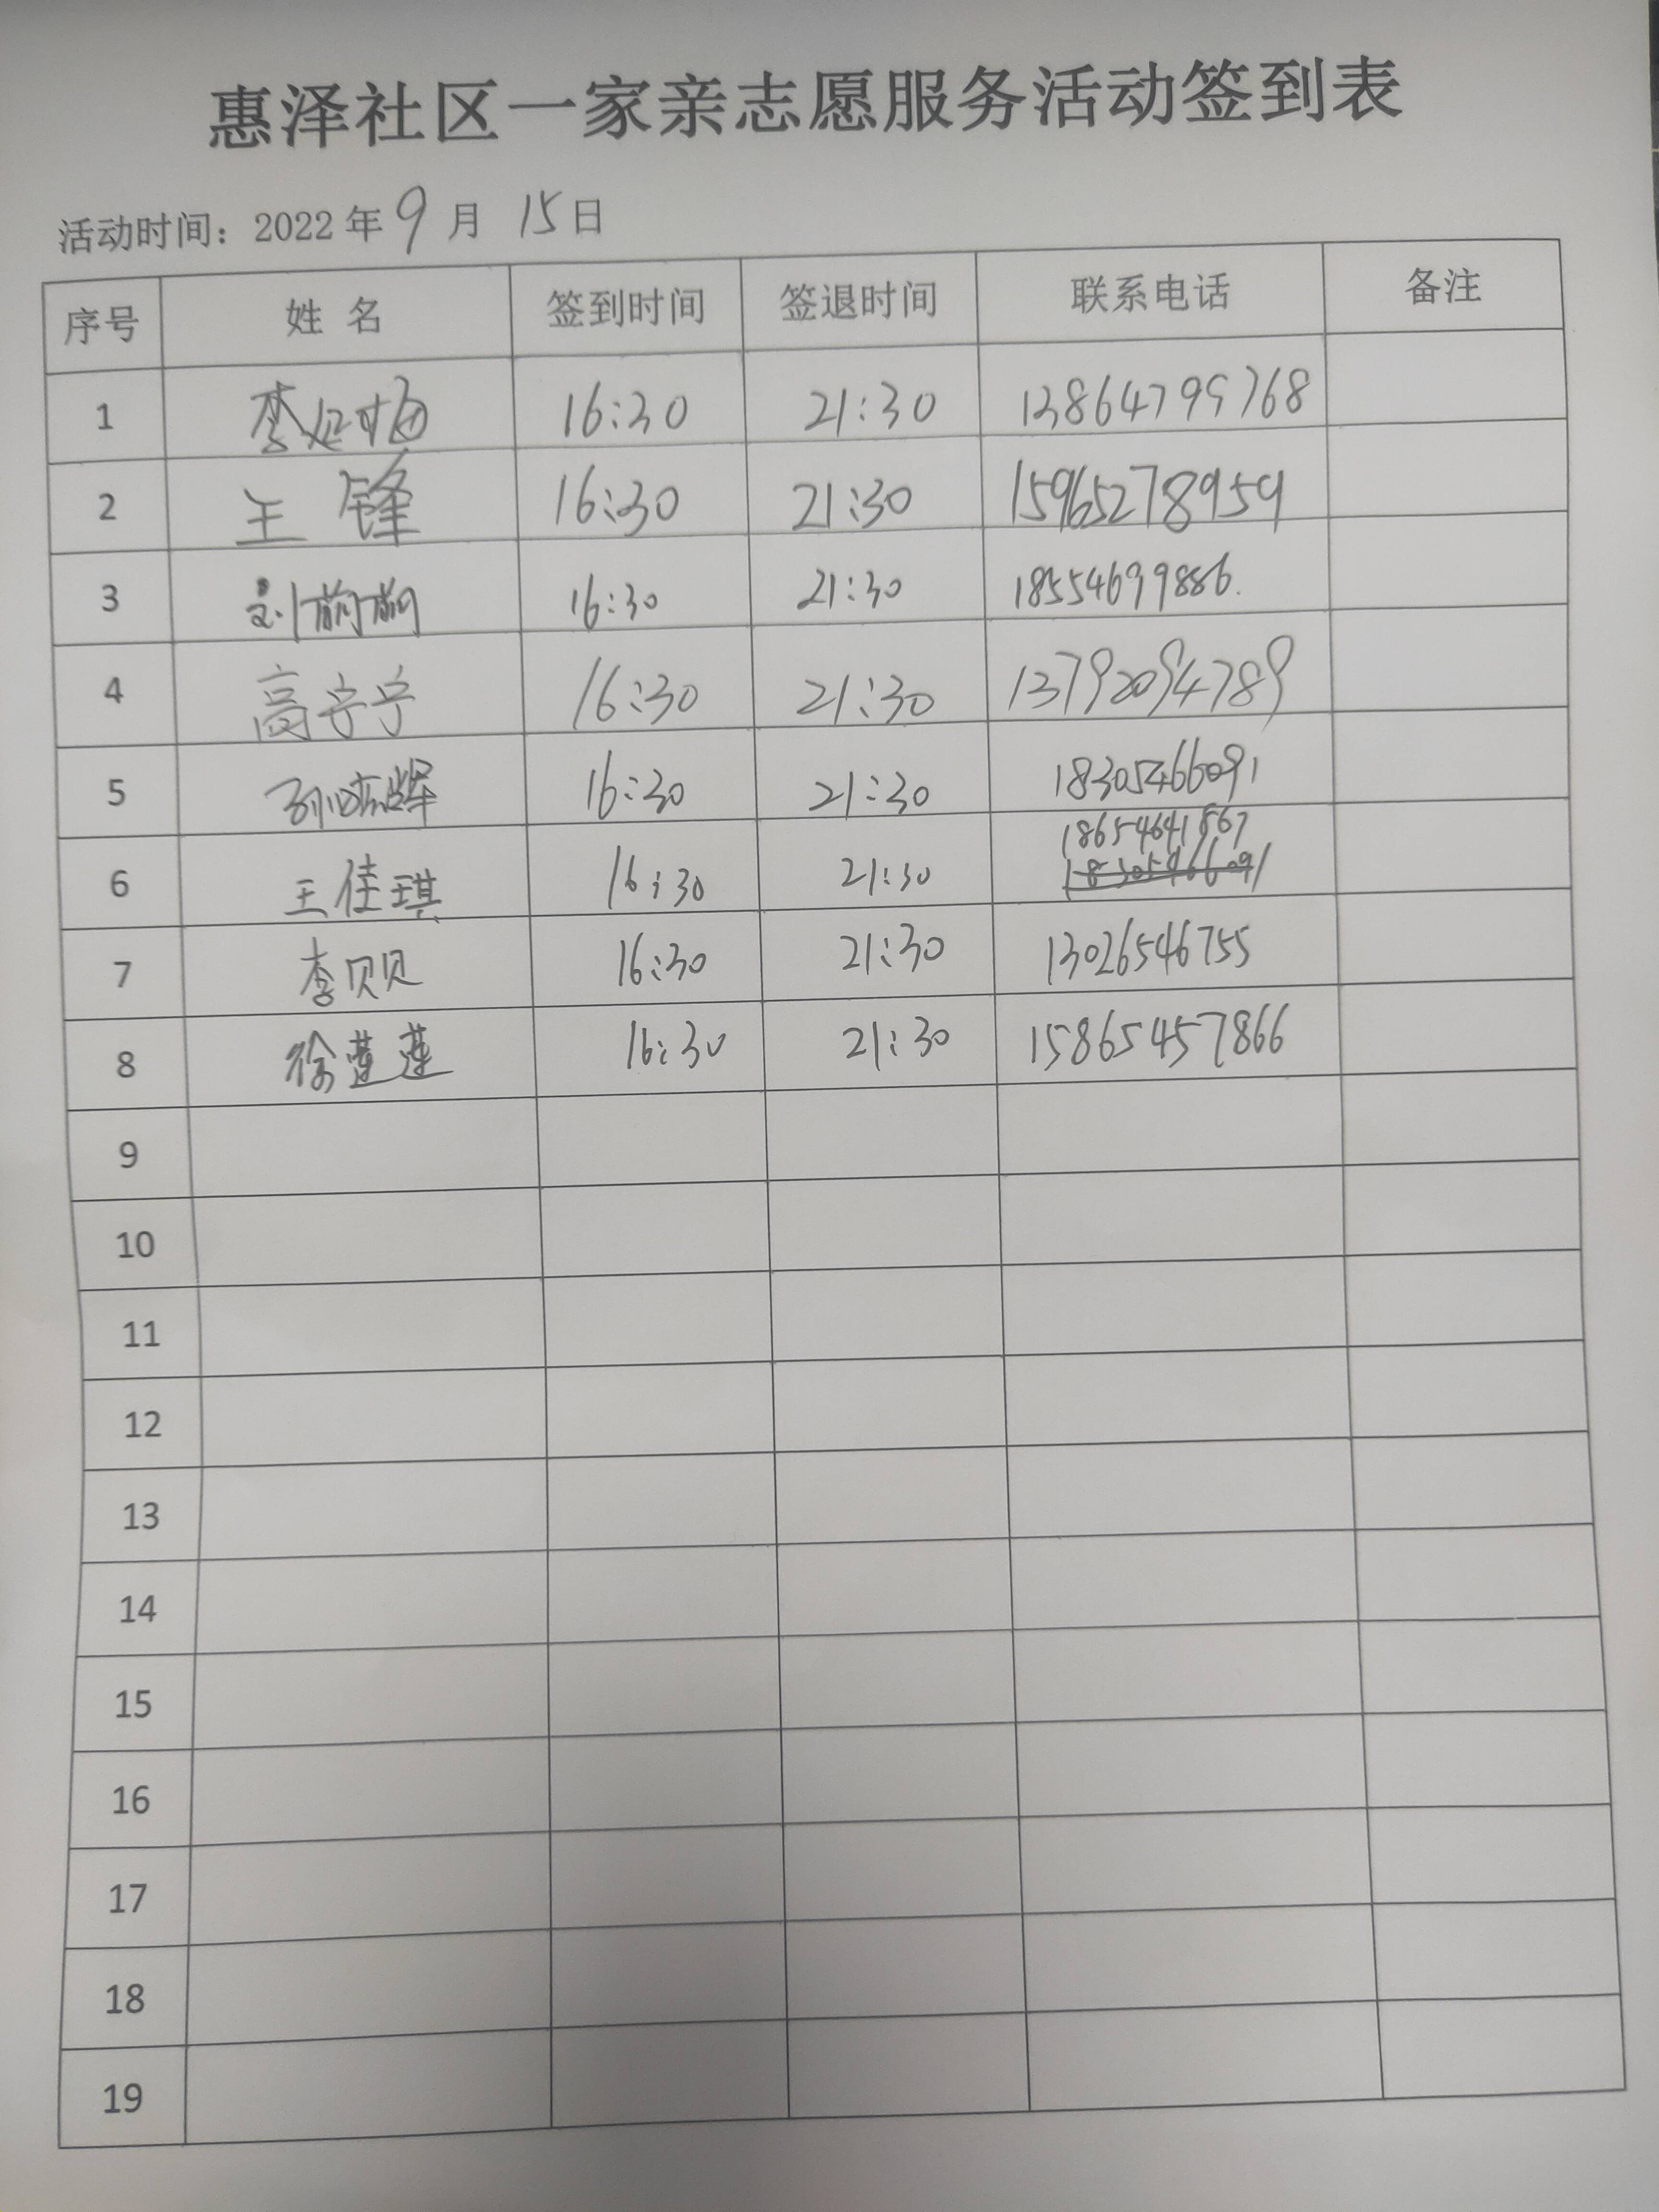 惠泽社区一家亲志愿服务活动签到表
活动时间：2022年9月15日
序号 姓 名 签到时间 签退时间 联系电话 备注
1 李 16:30 21:30 13864799768
2 王锋 16:30 21:30 15965278959
3 刘萌萌 16:30 21:30 18554699886.
4 高宁宁 16:30 21:30 13792094789
5 孙晓辉 16:30 21:30 18305466091
6 王佳琪 16:30 21:30 18654641867
18305466091
7 李贝贝 16:30 21:30 13026546755
8 徐莲莲 16:30 21:30 15865457866
9
10
11
12
13
14
15
16
17
18
19